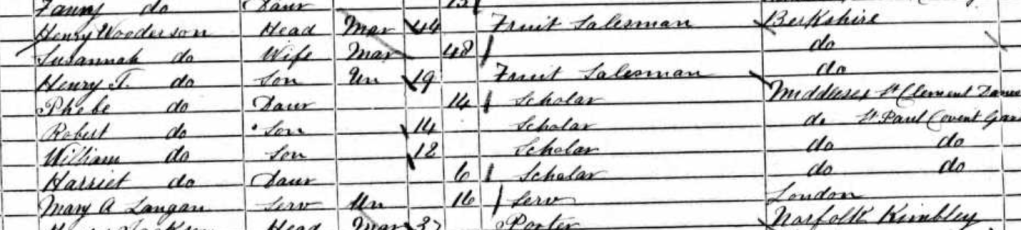 Fanny do Daur 13
Henry Wooderson Head Mar 44 Fruit Salesman Berkshire
Susannah do Wife Mar 48 do
Henry T. do Son Un 19 Fruit Salesman do
Phebe do Daur 14 Scholar Middlesex St Clement Danes
Robert do Son 14 Scholar do St Paul Covent Gar
William do Son 12 Scholar do do
Harriet do Daur 6 Scholar do do
Mary A Langan Serv Un 16 Serv London
Head Mar 37 Porter Norfolk Kimbley